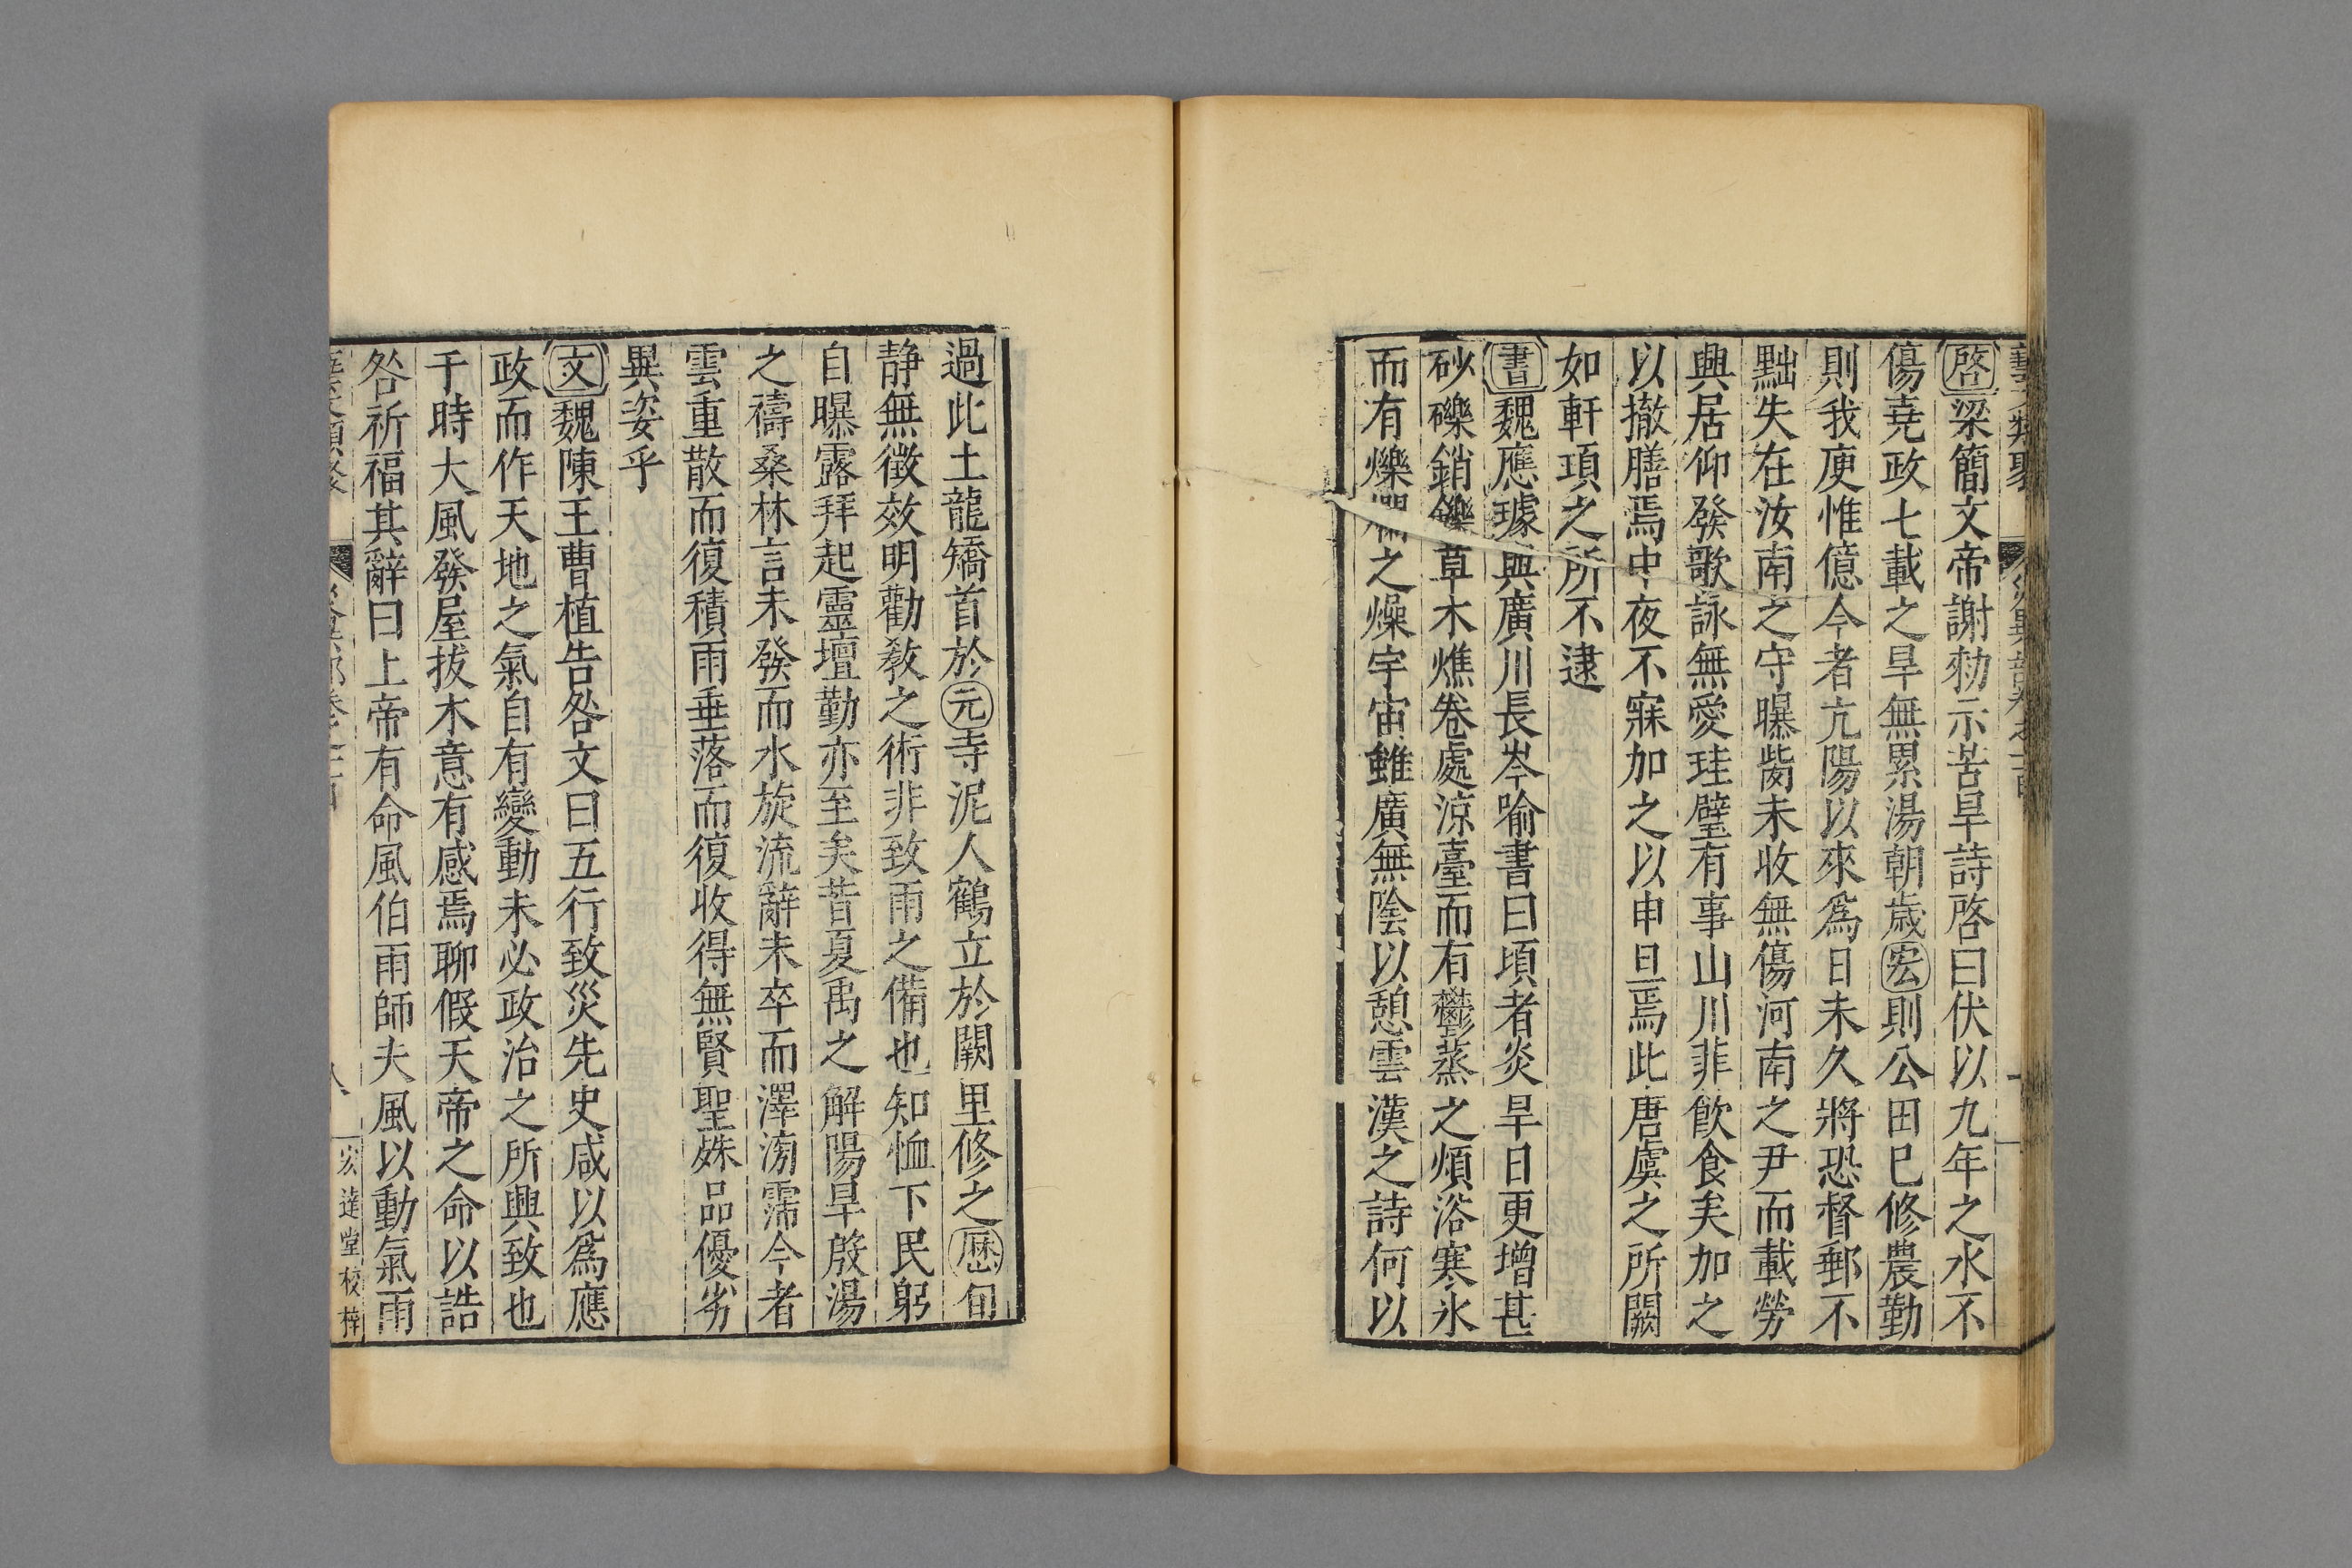 啓梁簡文帝謝勑示苦旱詩啓曰伏以九年之水不
傷堯政七載之旱無累湯朝歳宏則公田巳修農勤
則我庾惟億今者亢陽以來爲日未久將恐督郵不
黜失在汝南之守曝觜未收無傷河南之尹而載勞
興居仰發歌詠無愛珪璧有事山川菲飮食矣加之
以撤膳焉中夜不寐加之以申旦焉此唐虞之所闕
如軒頊之所不逮
書魏應璩與廣川長岑喻書曰頃者炎旱日更增甚
砂礫銷鑠草木燋卷處涼臺而有鬱蒸之煩浴寒水
而有爍爛之燥宇宙雖廣無陰以憩雲漢之詩何以
過此土龍矯首於元寺泥人鶴立於闕里修之厯旬
静無徴效明勸敎之術非致雨之備也知恤下民躬
自曝露拜起靈壇勤亦至矣昔夏禹之解陽旱殷湯
之禱桑林言未發而水旋流辭未卒而澤滂霈今者
雲重散而復積雨垂落而復收得無賢聖殊品優劣
異姿乎
文魏陳王曹植告咎文曰五行致災先史咸以爲應
政而作天地之氣自有變動未必政治之所興致也
于時大風發屋拔木意有感焉聊假天帝之命以誥
咎祈福其辭曰上帝有命風伯雨師夫風以動氣雨
宏達堂校梓